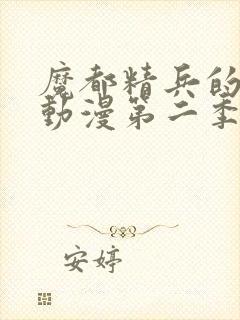 魔都精兵的
動漫第二季
安婷